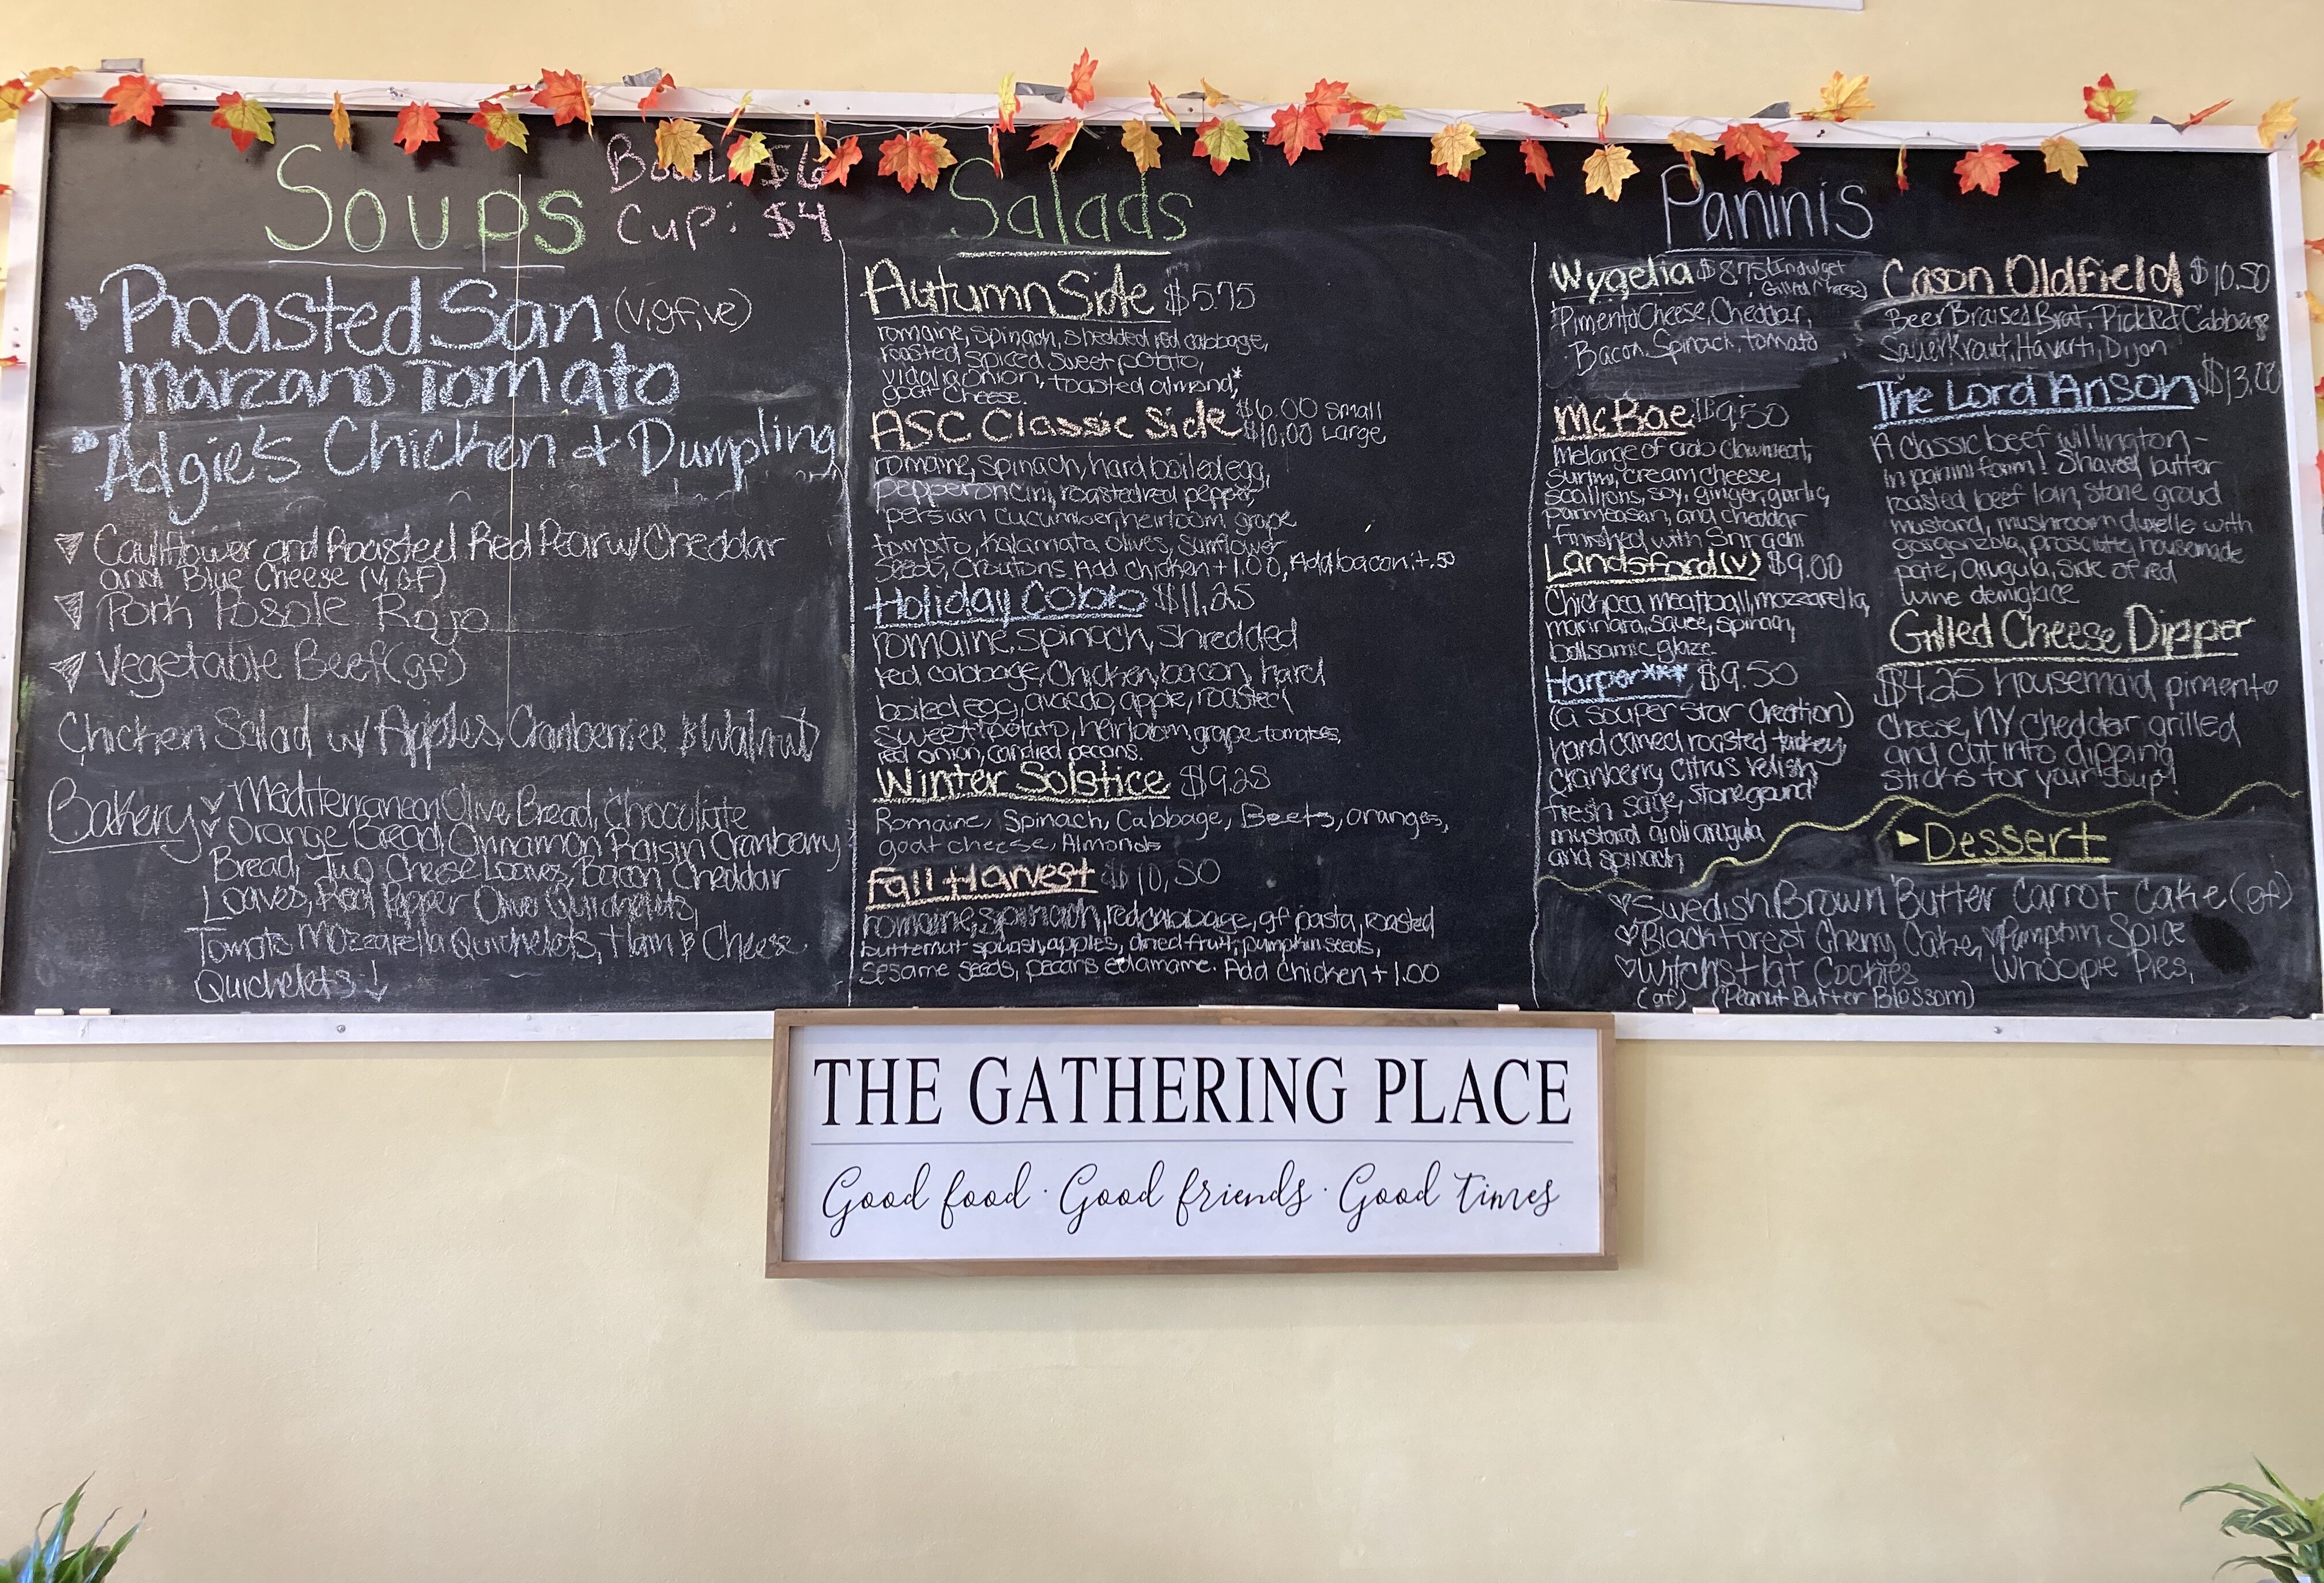 Soups
Bowl: $6
Cup: $4
Roasted San (v,gf,ve)
marzano Tomato
Adgie's Chicken & Dumpling
Cauliflower and Roasted Red Pear w/ Cheddar
and Blue Cheese (v,GF)
Pork Posole Rojo
Vegetable Beef (gf)
Chicken Salad w/ Apples, Cranberries & Walnut
Bakery
Mediterranean Olive Bread, Chocolate
Orange Bread, Cinnamon Raisin Cranberry
Bread, Jug Cheese Loaves, Bacon Cheddar
Loaves, Red Pepper Olive Quichelets,
Tomato Mozzarella Quichelets, Ham & Cheese
Quichelets ↓
Salads
Autumn Side $5.75
romaine, spinach, shredded red cabbage,
roasted spiced sweet potato,
vidalia onion, toasted almond*,
goat cheese.
ASC Classic Side $6.00 Small
$10.00 Large
romaine, spinach, hard boiled egg,
pepperoncini, roasted red pepper,
persian cucumber, heirloom grape
tomato, Kalamata olives, Sunflower
Seeds, Croutons. Add Chicken +1.00, Add bacon: +.50
Holiday Cobb $11.25
romaine, spinach, shredded
red cabbage, Chicken, bacon, hard
boiled egg, avocado, apple, roasted
sweet potato, heirloom grape tomatoes,
red onion, candied pecans.
Winter Solstice $9.25
Romaine, Spinach, Cabbage, Beets, oranges,
goat cheese, Almonds
Fall Harvest $10.50
romaine, spinach, red cabbage, gf pasta, roasted
butternut squash, apples, dried fruit, pumpkin seeds,
sesame seeds, pecans edamame. Add Chicken +1.00
Paninis
Wygelia $8.75 (Indulget
Grilled Cheese)
Pimento Cheese, Cheddar,
Bacon, Spinach, tomato
McRae $9.50
Melange of crab clawmeat,
Surimi, cream cheese,
scallions, soy, ginger, garlic,
parmeasan, and cheddar
finished with Sriracha
Landsford (v) $9.00
Chickpea meatball, mozzarella,
marinara, sauce, spinach,
balsamic glaze
Harper*** $9.50
(a souper star creation)
hand carved roasted turkey,
Cranberry Citrus relish,
fresh sage, stoneground
mustard aioli arugula
and spinach
Cason Oldfield $10.50
Beer Braised Brat, Pickled Cabbage
Sauerkraut, Havarti, Dijon
The Lord Anson $13.00
A classic beef willington-
in panini form! Shaved butter
roasted beef loin, stone groud
mustard, mushroom duxelle with
gorgonzola, prosciutto, housemade
pate, arugula, side of red
wine demiglace
Grilled Cheese Dipper
$4.25 housemaid pimento
cheese, NY Cheddar, grilled
and cut into dipping
sticks for your soup!
Dessert
Swedish Brown Butter Carrot Cake (gf)
Black Forest Cherry Cake, Pumpkin Spice
Witch's Hat Cookies Whoopie Pies,
(gf) (Peanut Butter Blossom)
THE GATHERING PLACE
Good food · Good friends · Good times